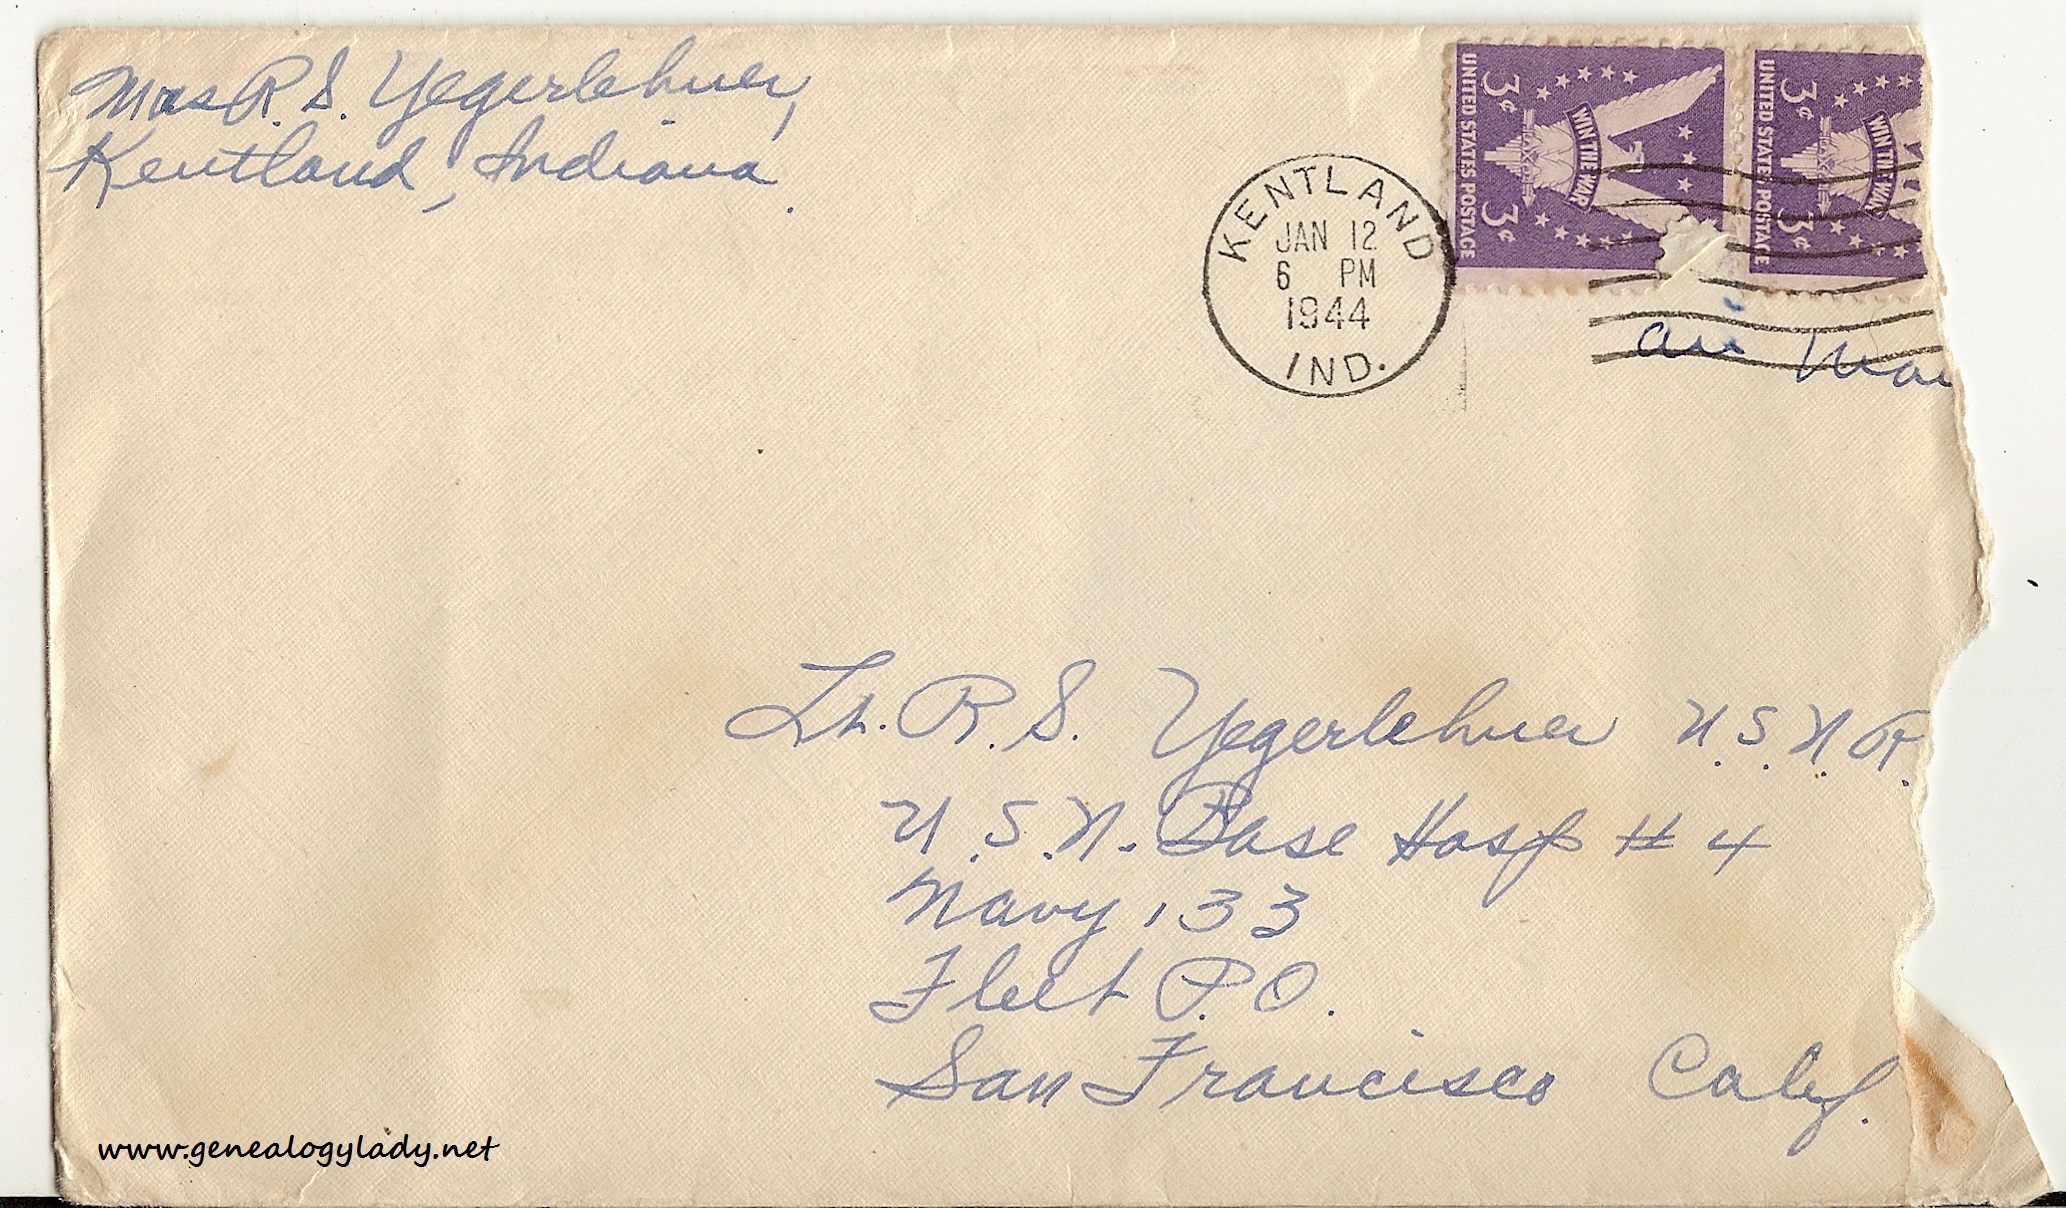 Mrs R. S. Yegerlehner,
Kentland, Indiana.
KENTLAND
JAN 12
6 PM
1944
IND.
UNITED STATES POSTAGE
3¢ 3¢
WIN THE WAR
UNITED STATES POSTAGE
3¢ 3¢
WIN THE WAR
air Mai
Lt. R. S. Yegerlehner U.S.N.R.
U.S.N. Base Hosp # 4
Navy 133
Fleet P.O.
San Francisco Calif.
www.genealogylady.net